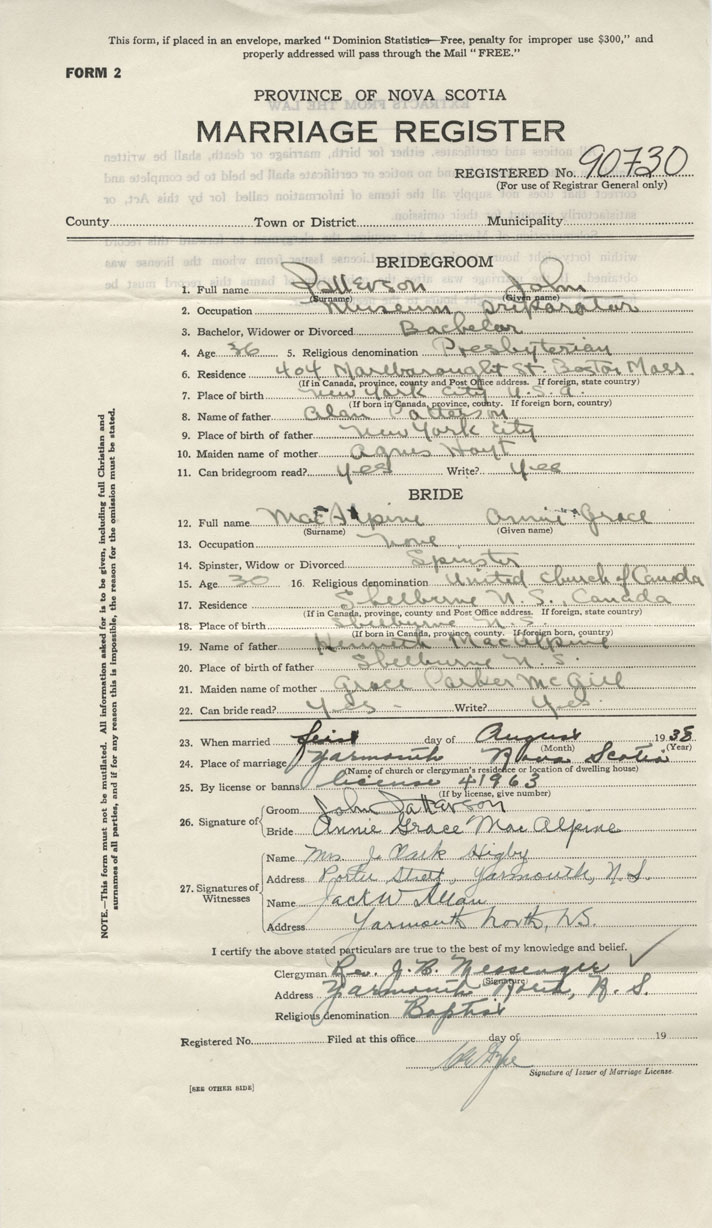 This form, if placed in an envelope, marked "Dominion Statistics—Free, penalty for improper use $300," and
properly addressed will pass through the Mail "FREE."
FORM 2
PROVINCE OF NOVA SCOTIA
MARRIAGE REGISTER
REGISTERED No. 90730
(For use of Registrar General only)
County Town or District Municipality
BRIDEGROOM
1. Full name Patterson John
(Surname) (Given name)
2. Occupation Museum preparator
3. Bachelor, Widower or Divorced Bachelor
4. Age 36 5. Religious denomination Presbyterian
6. Residence 404 Marlborough St. Boston Mass.
(If in Canada, province, county and Post Office address. If foreign, state country)
7. Place of birth New York City U.S.A.
(If born in Canada, province, county. If foreign born, country)
8. Name of father Alan Patterson
9. Place of birth of father New York City
10. Maiden name of mother Agnes Hoyt
11. Can bridegroom read? yes Write? yes
BRIDE
12. Full name MacAlpine Annie Grace
(Surname) (Given name)
13. Occupation none
14. Spinster, Widow or Divorced Spinster
15. Age 30 16. Religious denomination United Church of Canada
17. Residence Shelburne N.S., Canada
(If in Canada, province, county and Post Office address. If foreign, state country)
18. Place of birth Shelburne N.S.
(If born in Canada, province, county. If foreign born, country)
19. Name of father Kenneth MacAlpine
20. Place of birth of father Shelburne N.S.
21. Maiden name of mother Grace Parker McGill
22. Can bride read? Yes Write? Yes
23. When married first day of August 1938
(Month) (Year)
24. Place of marriage Yarmouth Nova Scotia
(Name of church or clergyman's residence or location of dwelling house)
25. By license or banns license 41963
(If by license, give number)
26. Signature of Groom John Patterson
Bride Annie Grace MacAlpine
27. Signatures of Witnesses
Name Mrs. J. Clark Higby
Address Porter Street, Yarmouth, N.S.
Name Jack W Allan
Address Yarmouth North, N.S.
I certify the above stated particulars are true to the best of my knowledge and belief.
Clergyman Rev. J. B. Messenger
(Signature)
Address Yarmouth North, N.S.
Religious denomination Baptist
Registered No. Filed at this office day of 19
Signature of Issuer of Marriage License.
[SEE OTHER SIDE]
NOTE.—This form must not be mutilated. All information asked for is to be given, including full Christian and
surnames of all parties, and if for any reason this is impossible, the reason for the omission must be stated.